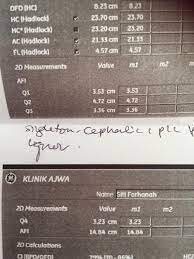 OFD (HC) 8.23 cm 8.23
HC (Hadlock) 23.70 cm 23.70
HC* (Hadlock) 23.20 cm 23.20
AC (Hadlock) 21.33 cm 21.33
FL (Hadlock) 4.57 cm 4.57
2D Measurements Value m1 m2
AFI
Q1 3.53 cm 3.53
Q2 4.72 cm 4.72
Q3 3.36 cm 3.36
singleton. Cephalic, plc
upper.
KLINIK AJWA
Name: Siti Farhanah
2D Measurements Value m1 m2
Q4 3.23 cm 3.23
AFI 14.84 cm 14.84
2D Calculations